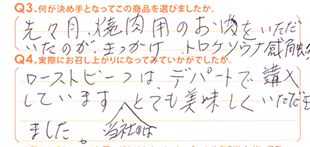 Q3.何が決め手となってこの商品を選びましたか。
先々月、焼肉用のお肉をいただ
いたのが、きっかけ トロケソウナ感触
Q4.実際にお召し上がりになってみていかがでしたか。
ローストビーフは、デパートで購入
しています とても美味しくいただき
ました。 当社のは